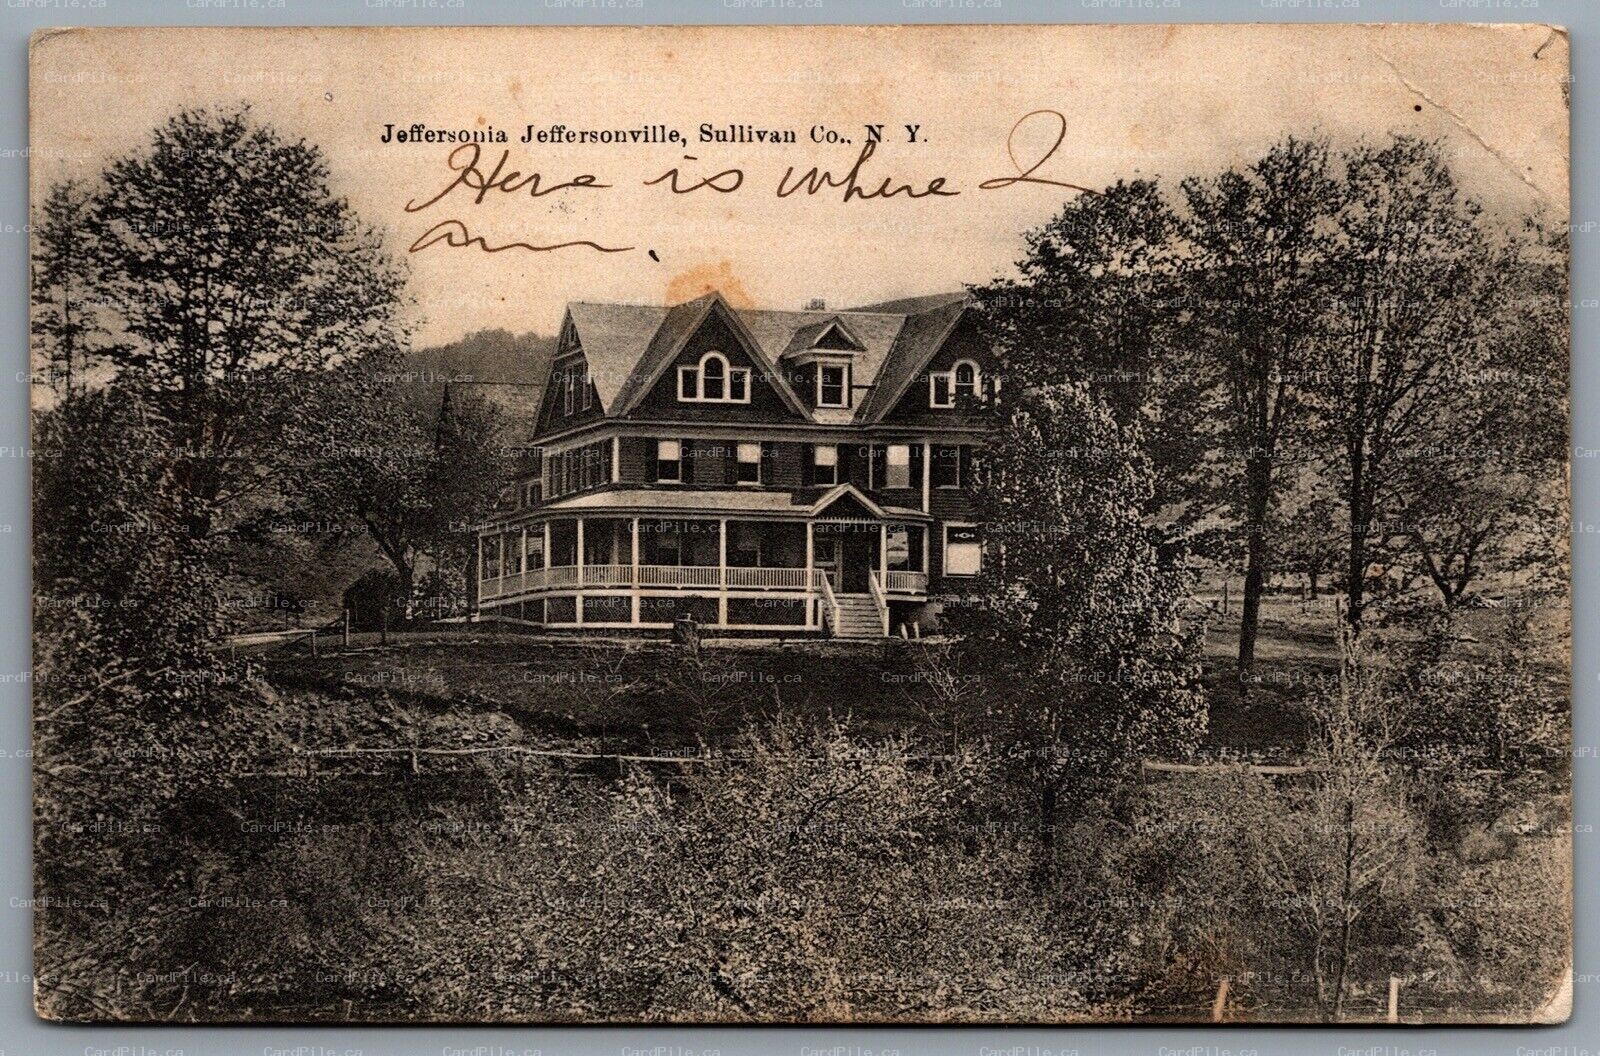 Jeffersonia Jeffersonville, Sullivan Co., N. Y.
Here is where I
am.
CardPile.ca